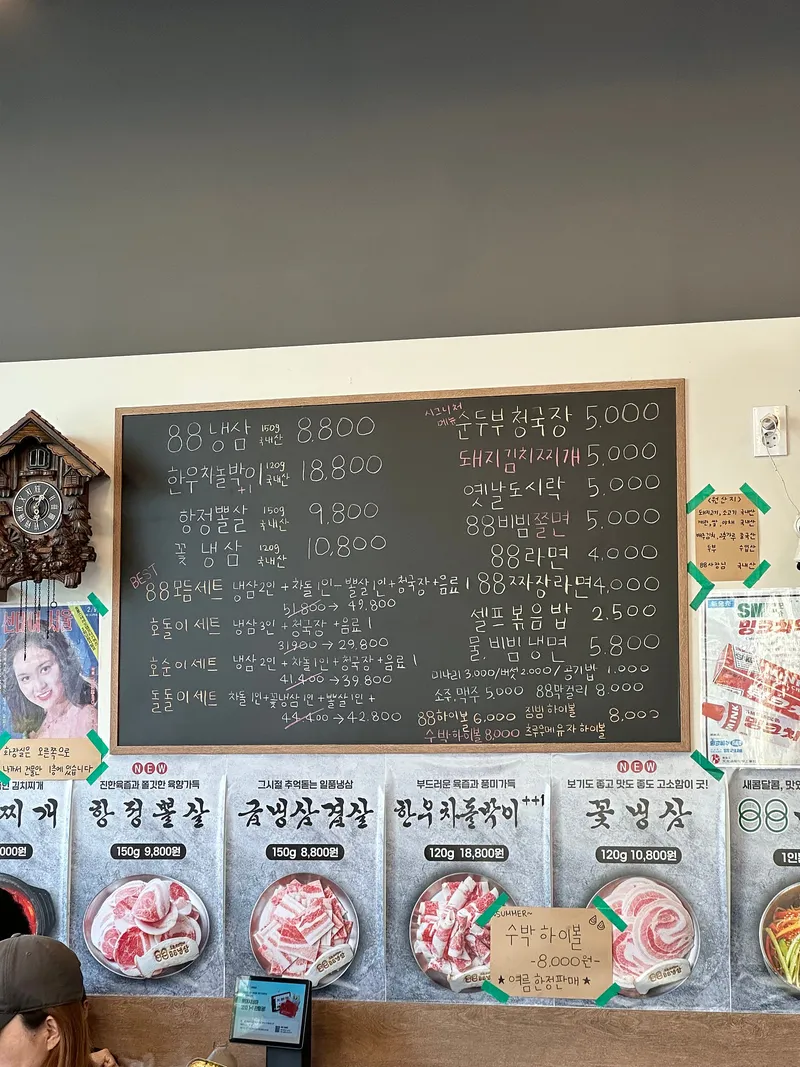 88 냉삼 150g 국내산 8,800
한우차돌박이 120g 국내산 18,800
+1
항정뽈살 150g 국내산 9,800
꽃 냉삼 120g 국내산 10,800
BEST
88모듬세트 냉삼2인 + 차돌1인 - 뽈살1인 + 청국장 + 음료1
51,800 → 49,800
호돌이세트 냉삼3인 + 청국장 + 음료1
31,900 → 29,800
호순이세트 냉삼2인 + 차돌1인 + 청국장 + 음료1
41,400 → 39,800
돌돌이세트 차돌1인+꽃냉삼1인+뽈살1인+
44,400 → 42,800
시그니처
메뉴
순두부청국장 5,000
돼지김치찌개 5,000
옛날도시락 5,000
88비빔쫄면 5,000
88라면 4,000
88짜장라면 4,000
셀프볶음밥 2,500
물,비빔냉면 5,800
미나리 3,000/버섯 2,000/공기밥 1,000
소주,맥주 5,000 88막걸리 8,000
88하이볼 6,000 짐빔하이볼 8,000
수박하이볼 8,000 유자하이볼
<원산지>
돼지고기, 소고기 국내산
계란, 쌀, 야채 국내산
배추김치, 고춧가루 중국산
두부 수입산
88사장님 국내산
화장실은 오른쪽으로
나가서 건물안 1층에 있습니다
김치찌개
찌개
000원
NEW
진한육즙과 쫄깃한 육향가득
항정뽈살
150g 9,800원
그시절 추억돋는 일품냉삼
급냉삼겹살
150g 8,800원
부드러운 육즙과 풍미가득
한우차돌박이++1
120g 18,800원
NEW
보기도 좋고 맛도 좋도 고소함이 굿!
꽃냉삼
120g 10,800원
새콤달콤, 맛있
88
1인
SUMMER~
수박 하이볼
-8,000원-
★여름 한정판매★